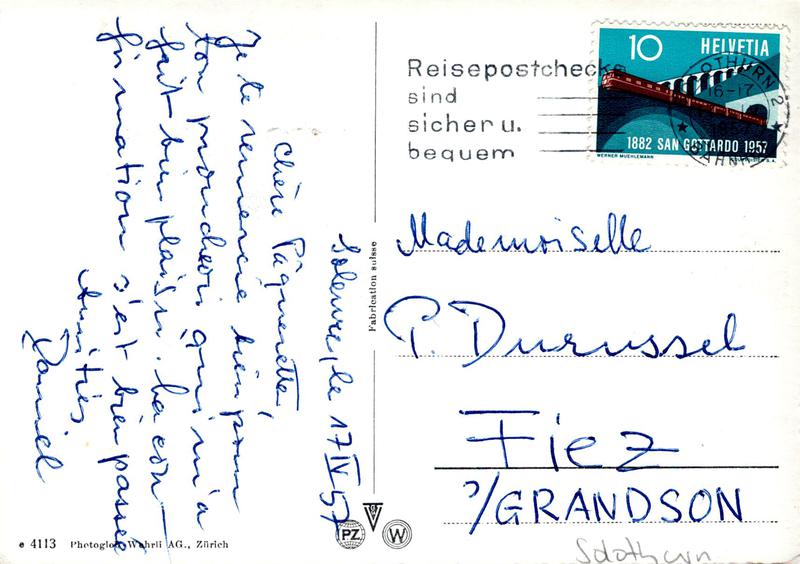 Soleure, le 17 IV 57
Chère Pâquerette,
Je te remercie bien pour
ton qui m'a
fait bien plaisir. La con-
firmation s'est bien passée
Amitiés
Daniel
Fabrication suisse
Reisepostchecks
sind
sicher u.
bequem
10 HELVETIA
SOLOTHURN 2
16-17
1957
BAHNHOF
1882 SAN GOTTARDO 1957
WERNER MUEHLEMANN
Mademoiselle
P. Durussel
Fiez
s/GRANDSON
Solothurn
PZ
W
e 4113 Photoglob-Wehrli AG., Zürich